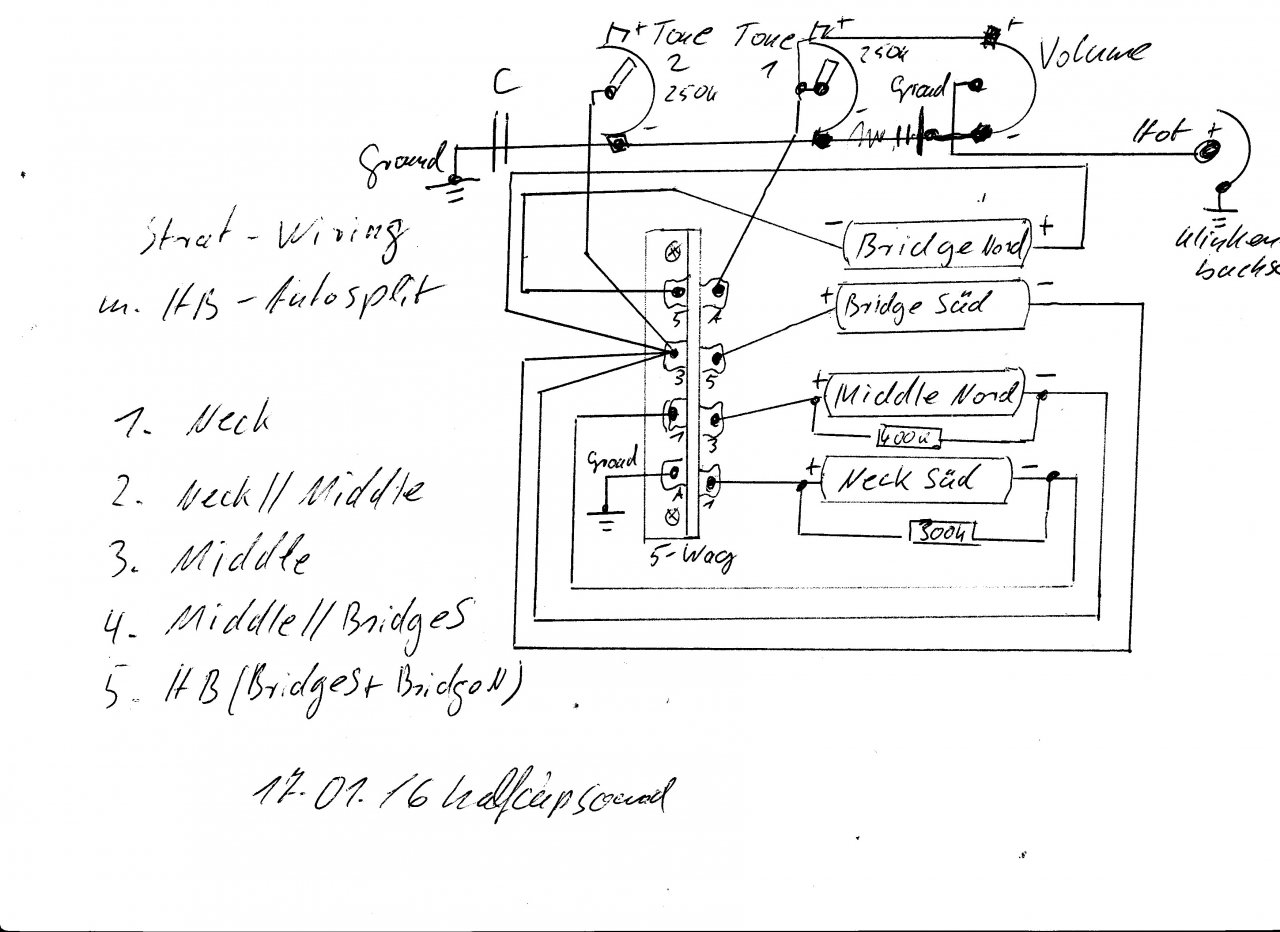 + Tone
2
250k
Tone
1
+
250k
+
Volume
C
Ground
-
-
Ground
-
Hot +
Ground
Strat - Wiring
m. HB - Autosplit
- Bridge Nord +
+ Bridge Süd -
+ Middle Nord -
400k
+ Neck Süd -
300k
5 A
3 5
1 3
A 1
Ground
5-Wag
1. Neck
2. Neck // Middle
3. Middle
4. Middle // BridgeS
5. HB (BridgeS + BridgeN)
17.01.16